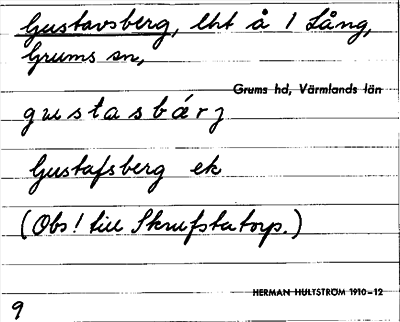 Gustavsberg, lht å 1 Lång,
Grums sn,
Grums hd, Värmlands län
gustasbárj
Gustafsberg ek
(Obs! till Skrufstatorp.)
HERMAN HULTSTRÖM 1910-12
9